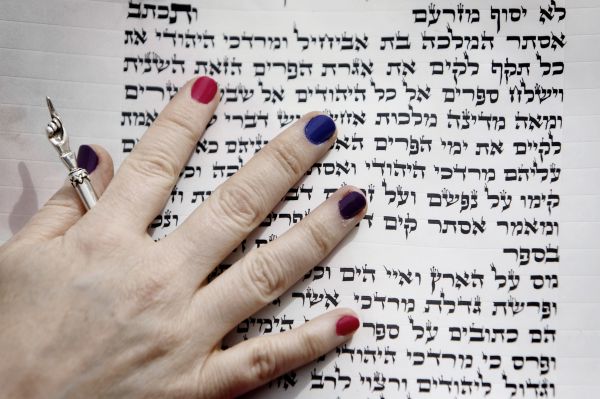 לא יסוף מזרעם ותכתב
אסתר המלכה בת אביחיל ומרדכי היהודי את
כל תקף לקים את אגרת הפרים הזאת השנית
וישלח ספרים אל כל היהודים אל
ומאה מדינה מלכות דברי
לקים את ימי הפרים
עליהם מרדכי היהודי
קימו על נפשם ועל
ומאמר אסתר קים
בספר
מס על הארץ ואיי הים
ופרשת גדלת מרדכי אשר
הם כתובים על ספר הימים
ופרס כי מרדכי היהודי
וגדול ליהודים ורצוי לרב